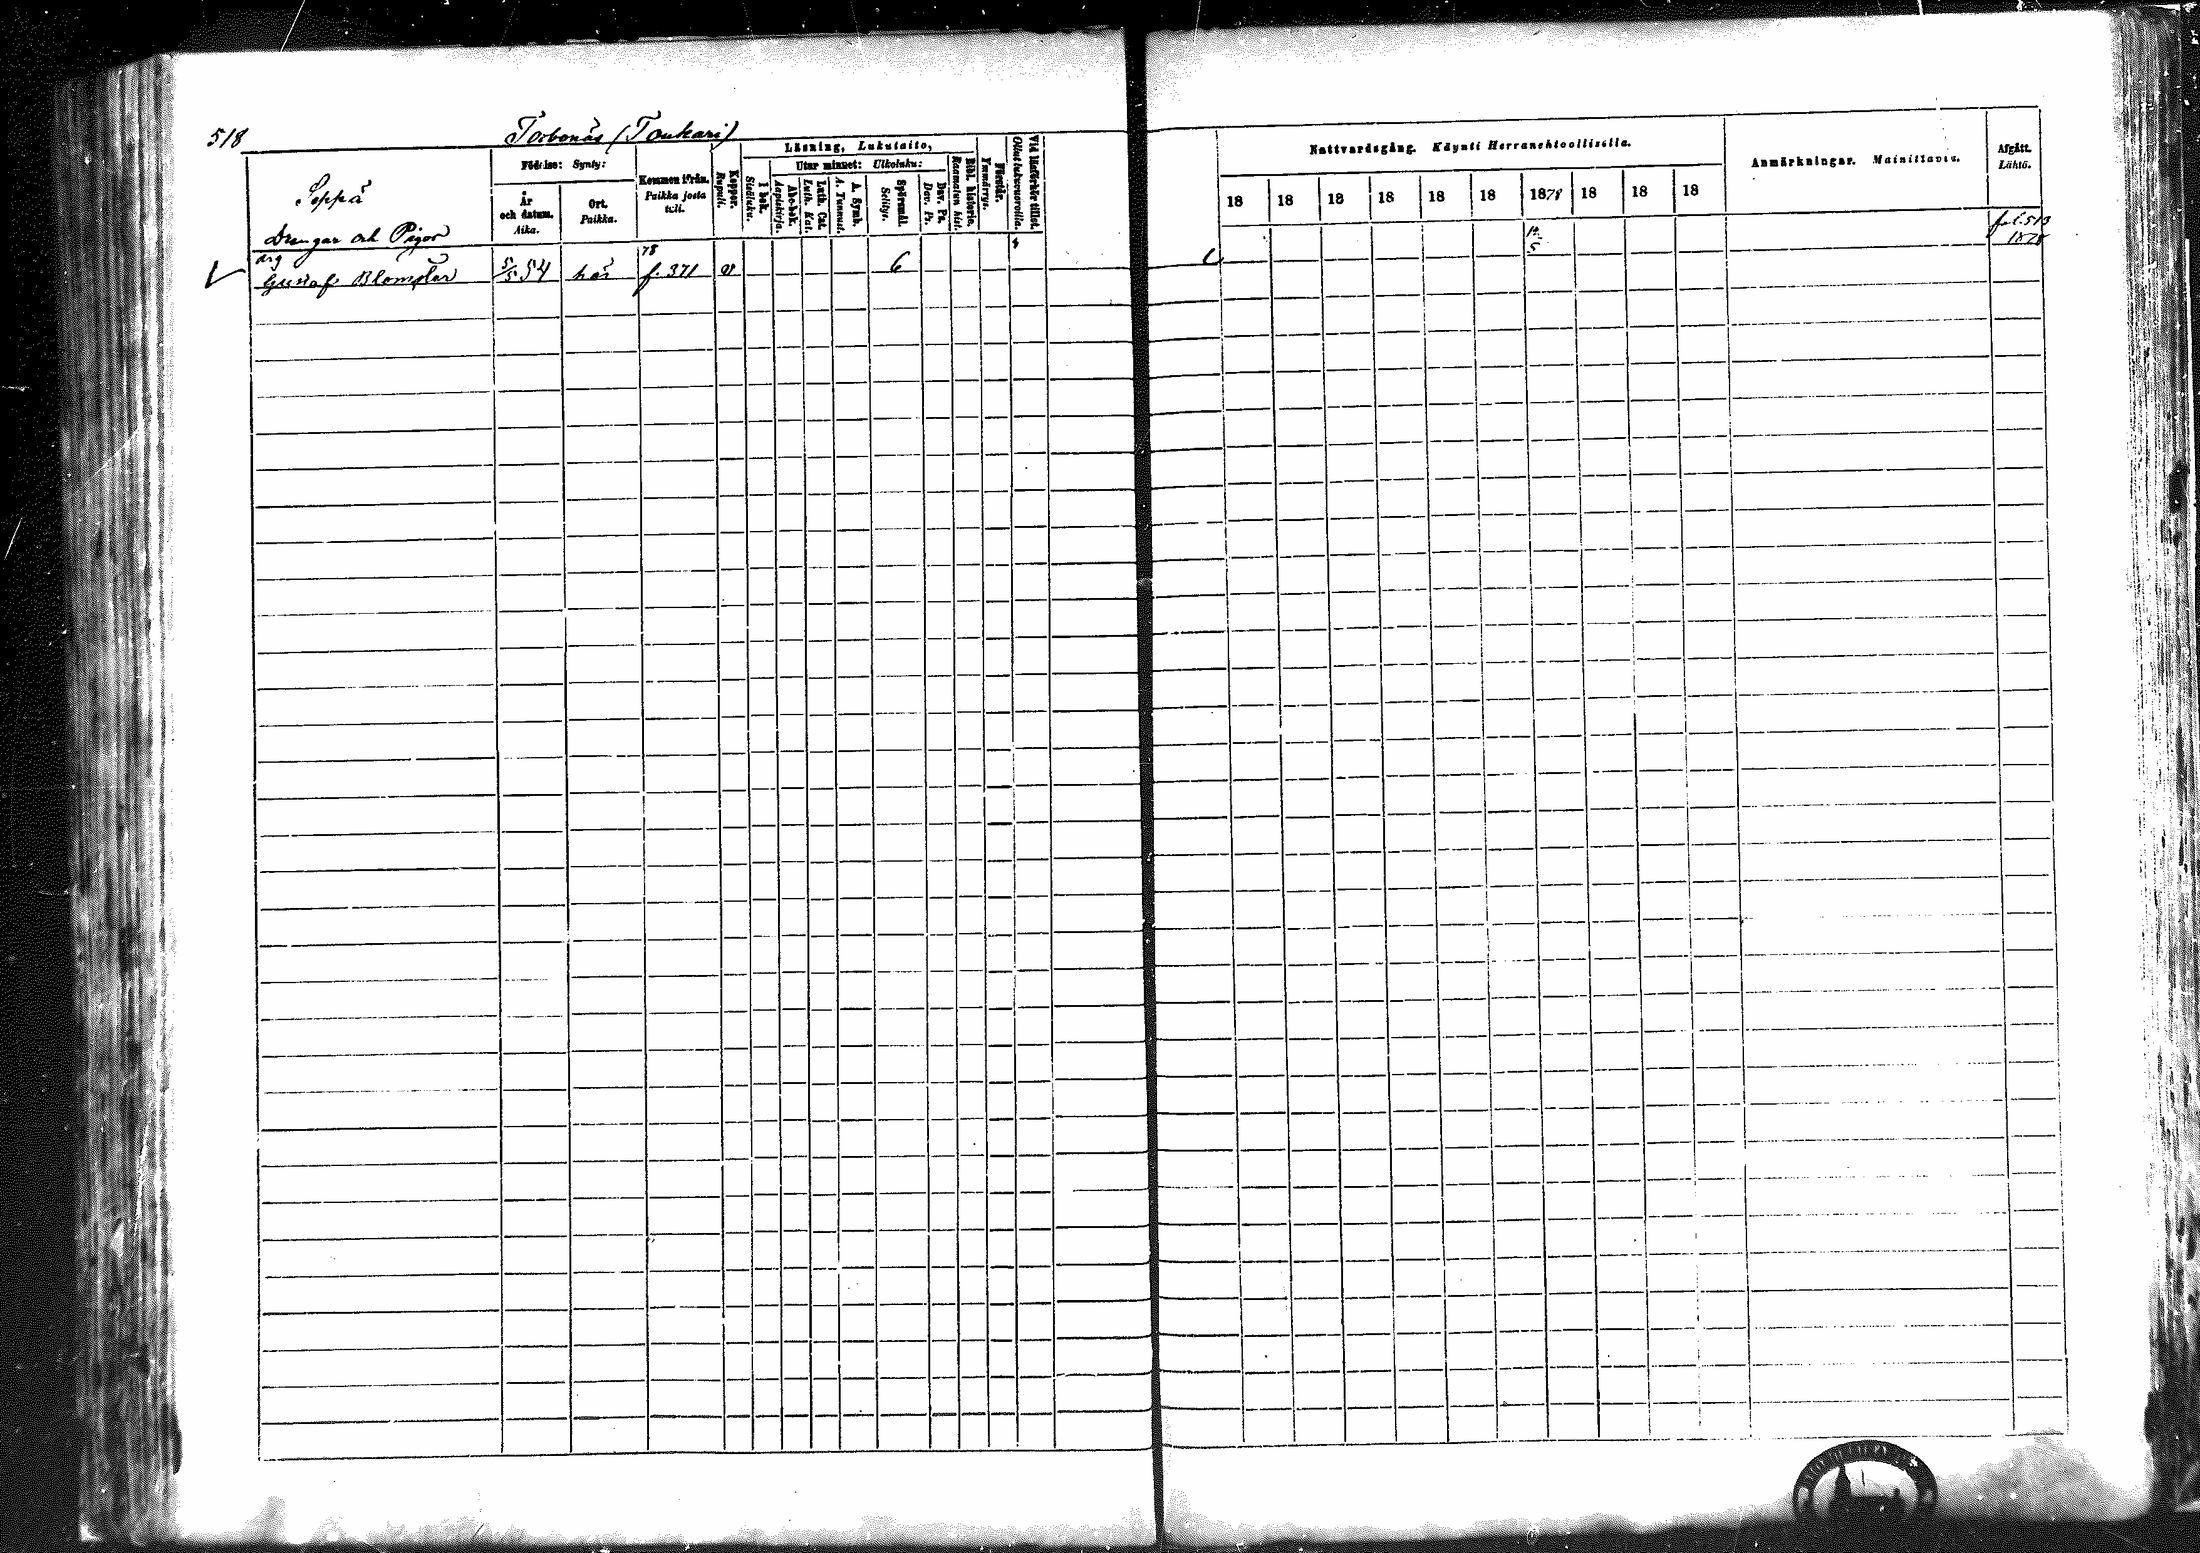 518
Torbonäs (Toukari)
Seppä
Drengar och Pigor
Födelse: Synty:
År och datum. Aika.
Ort. Paikka.
Kommen ifrån. Paikka josta tuli.
Koppor. Rupuli.
Läsning, Lukutaito,
I bok. Sisäluku.
Utur minnet: Ulkoluku:
Abc-bok. Aapiskirja.
Luth. Cat. Luth. Kat.
A. Symb. A. Tunnust.
Spörsmål. Selitys.
Dav. Ps. Dav. Ps.
Bibl. historia. Raamatun hist.
Förstår. Ymmärrys.
Vid läsförhör tillst. Ollut lukuvuoroilla.
Nattvardsgång. Käynti Herranehtoollisella.
18 18 18 18 18 18 1878 18 18 18
Anmärkningar. Mainittavia.
Afgått. Lähtö.
drg
Gustaf Blomster 5/5 54 här 78 f. 371 v 6
fol. 513
1878